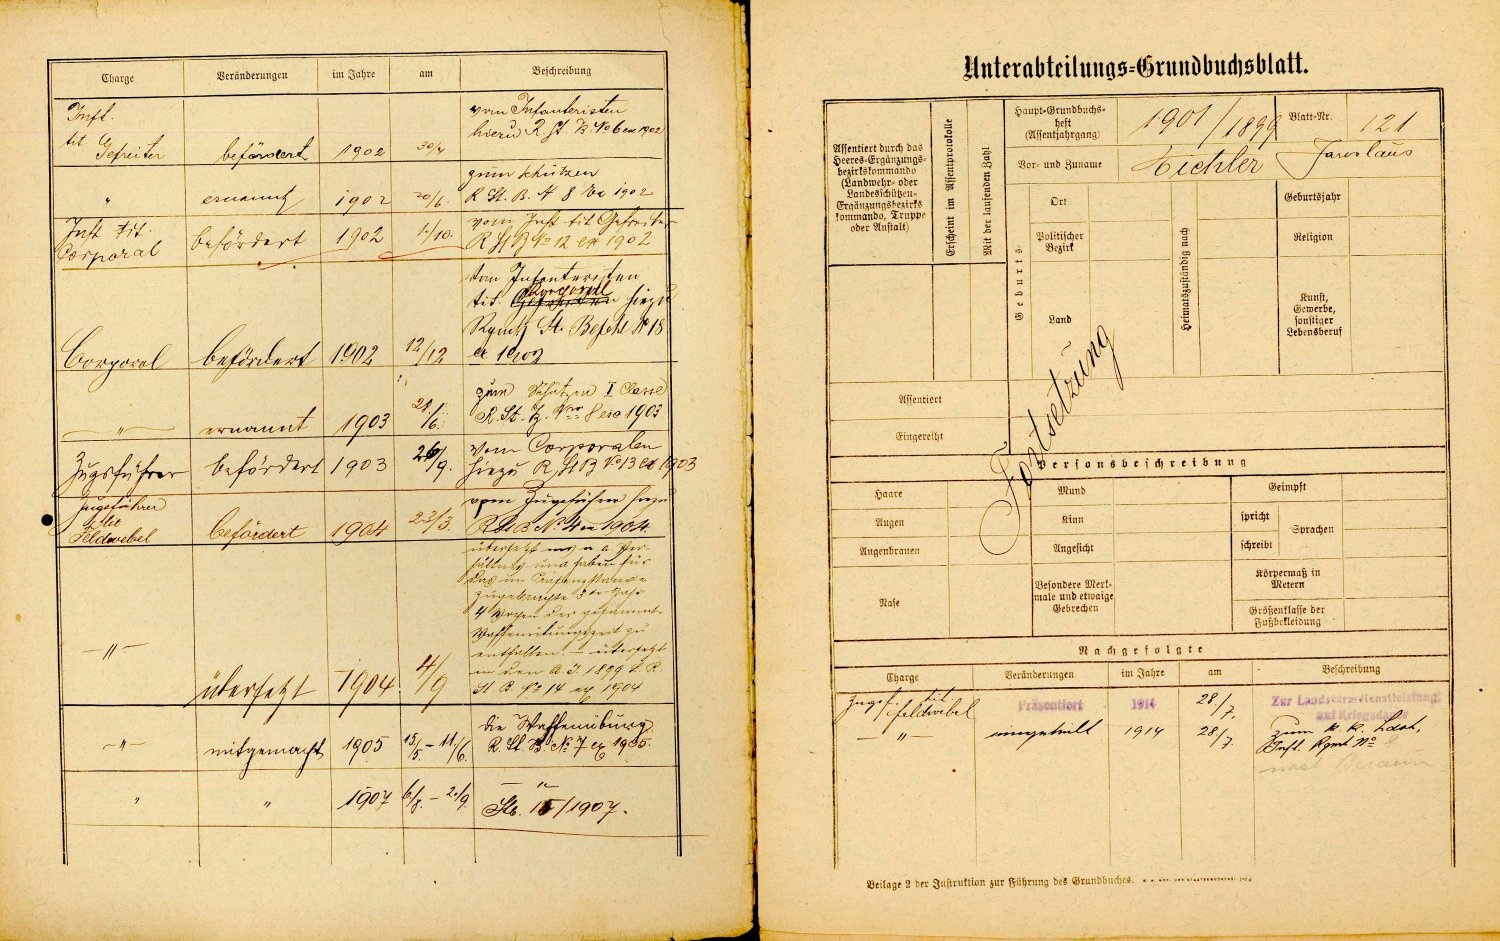 Charge Veränderungen im Jahre am Beschreibung
Inft.
tit Gefreiter befördert 1902 30/4 vom Infanteristen
hiezu R. St. B. No 6 ex 1902
" ernannt 1902 20/6. zum Schützen
R. St. B. No 8 1902
Inft tit.
Corporal befördert 1902 1/10. vom Inft tit Gefreiter
R St B No 12 ex 1902
Corporal befördert 1902 12/12 vom Infanteristen
tit. Corporal hiezu
St. Befehl No 18
ex 1902
" ernannt 1903 21/6. zum Schützen I Classe
R. St. B. 8 1903
Zugsführer befördert 1903 26/9. vom Corporalen
hiezu R. St B No 13 ex 1903
Zugsführer
tit
Feldwebel befördert 1904 23/3 vom Zugsführer hiezu
R St B No 4 ex 1904
" übersetzt 1904. 4/9
und haben für
das im
zugebrachte
4 Wochen der gesammt-
Waffenübungszeit zu
entfallen. – übersetzt
in den A. J. 1899 L. R.
St. B. No 14 ex 1904
" mitgemacht 1905 15/5. – 11/6. die Waffenübung
R. St B No 7 ex 1905.
" " 1907 6/8. – 2/9. "
Stb. 15/1907.
Unterabteilungs=Grundbuchsblatt.
Assentiert durch das
Heeres-Ergänzungs-
bezirkskommando
(Landwehr- oder
Landesschützen-
Ergänzungsbezirks
kommando, Truppe
oder Anstalt)
Erscheint im Assentprotokolle
Mit der laufenden Zahl
Haupt-Grundbuchs-
heft
(Assentjahrgang) 1901/1899 Blatt-Nr. 121
Vor- und Zuname Eichler Jaroslaus
Geburts-
Ort
Politischer
Bezirk
Land
Heimatszuständig nach
Geburtsjahr
Religion
Kunst,
Gewerbe,
sonstiger
Lebensberuf
Fortsetzung
Assentiert
Eingereiht
Personsbeschreibung
Haare Mund Geimpft
Augen Kinn spricht Sprachen
Augenbrauen Angesicht schreibt
Nase Besondere Merk-
male und etwaige
Gebrechen
Körpermaß in
Metern
Größenklasse der
Fußbekleidung
Nachgefolgte
Charge Veränderungen im Jahre am Beschreibung
Zugsf. tit
Feldwebel Präsentiert 1914 28/7. Zur Landsturmdienstleistung
auf Kriegsdauer
" eingeteilt 1914 28/7. Zum k. k. Ldst.
Inft. Rgmt No
nach Beraun
Beilage 2 der Instruktion zur Führung des Grundbuches.